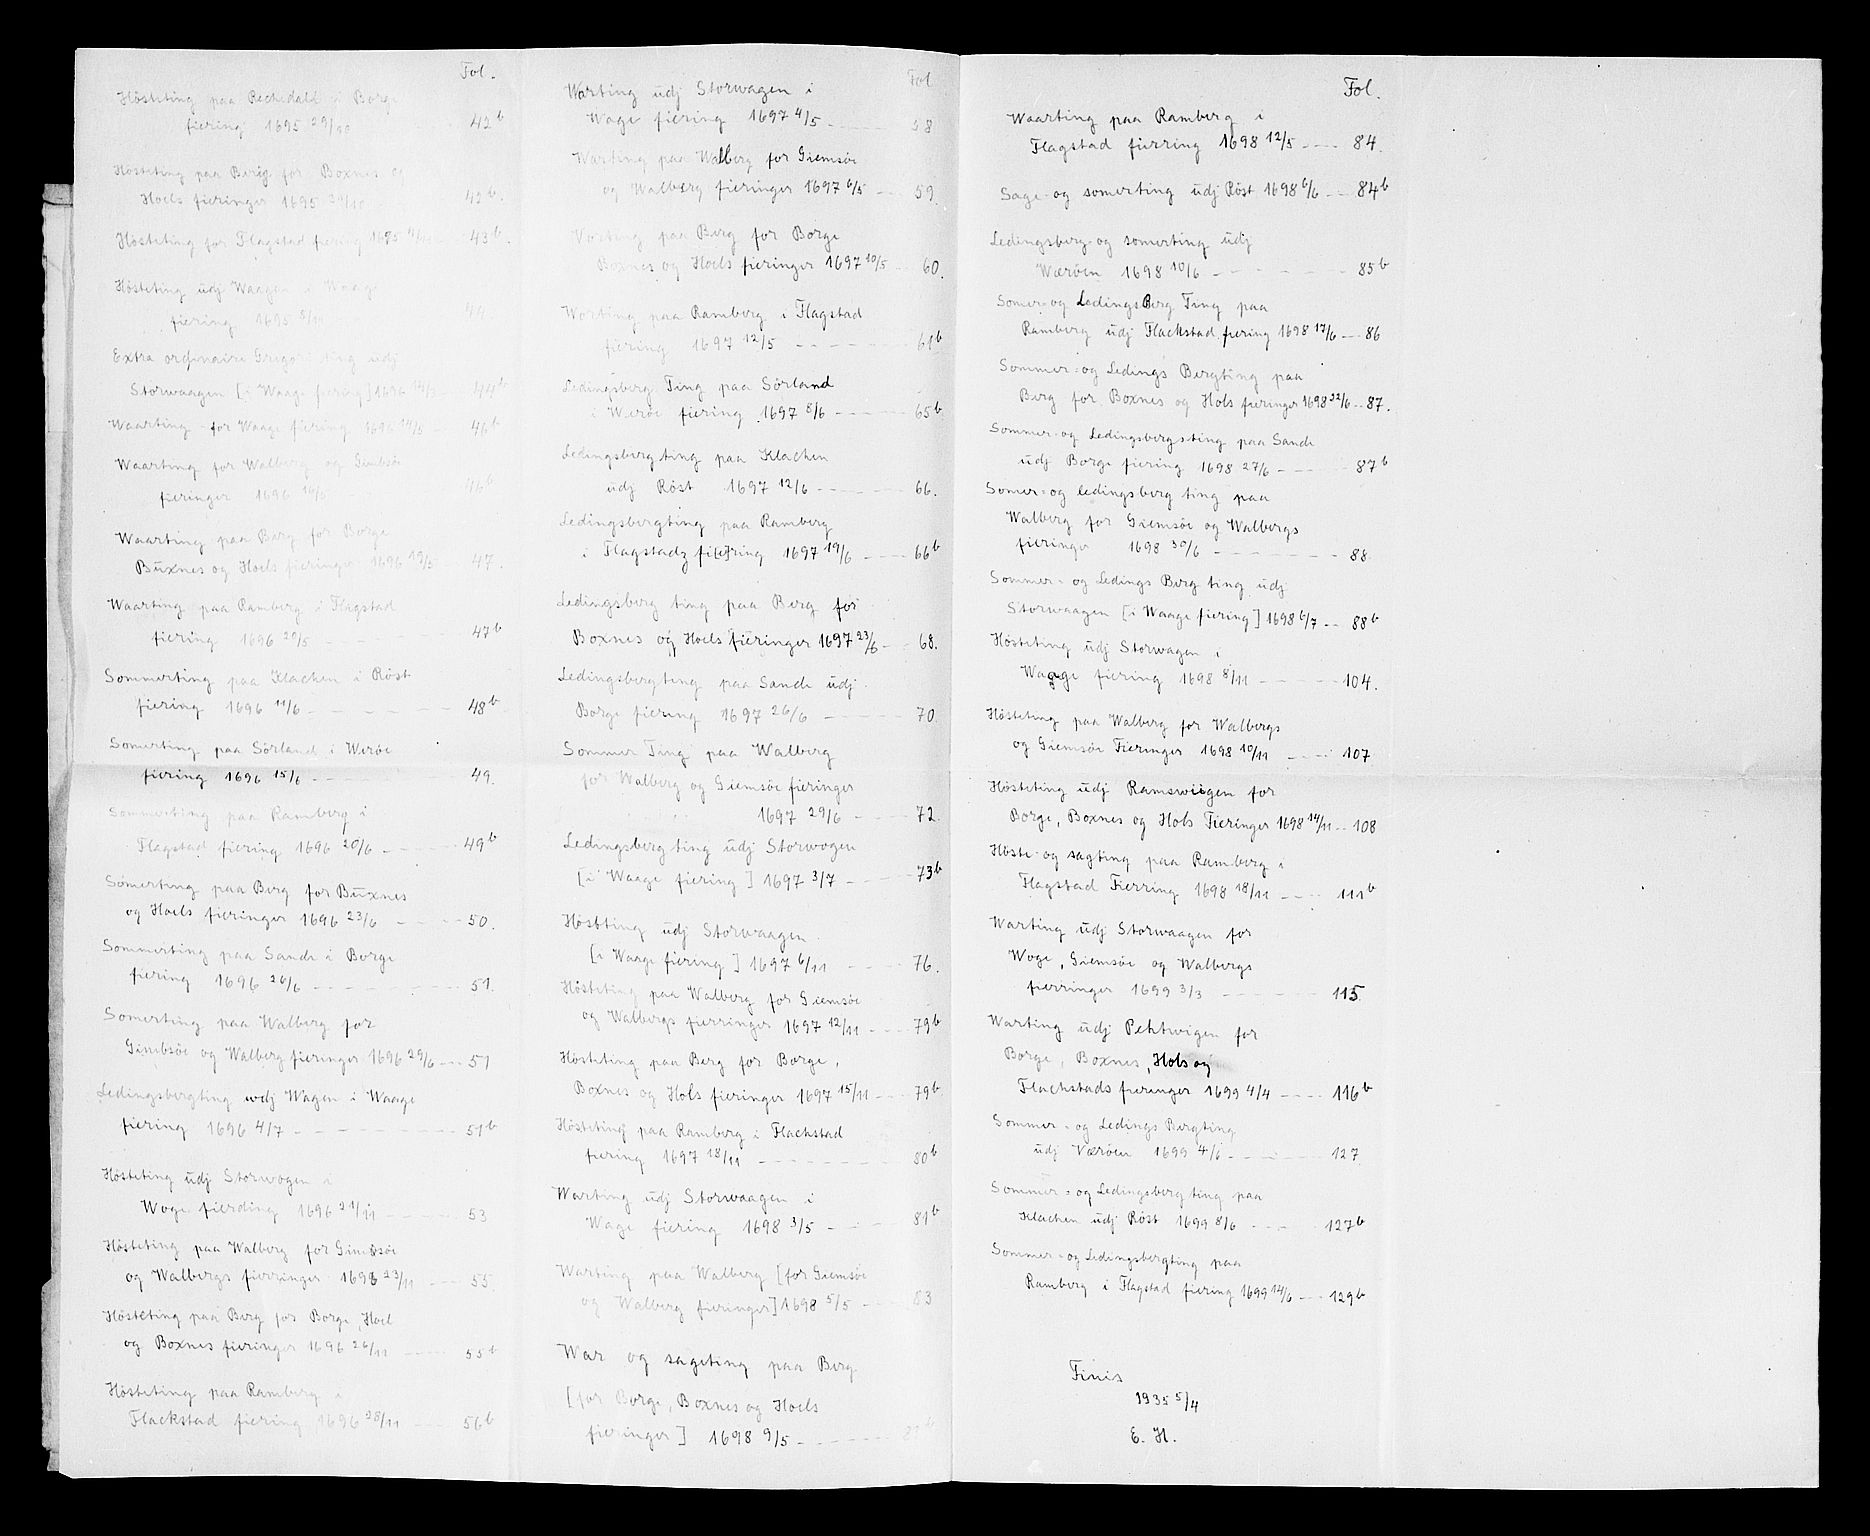 Fol.
Hösteting paa Rechedall i Borge
fiering 1695 29/10 42b
Hösteting paa Berig for Boxnes og
Hoels fieringer 1695 42b.
Hösteting for Flagstad fiering 1695 43b.
Hösteting udj Waagen i Waage
fiering 1695 8/11 44
Extra ordinaire Gregori ting udj
Storwaagen [i Waage fiering] 1696 44b
Waarting for Waage fiering 1696 14/5 46b
Waarting for Walberg og Gimbsöe
fieringer 1696 16/5 46b
Waarting paa Berg for Borge
Buxnes og Hoels fieringer 1696 19/5 47.
Waarting paa Ramberg i Flagstad
fiering 1696 29/5 47b
Sommerting paa Klachen i Röst
fiering 1696 11/6 - - - - 48b
Somerting paa Sörland i Weröe
fiering 1696 15/6 - - - 49.
Sommerting paa Ramberg i
Flagstad fiering 1696 20/6 - - - - 49b
Somerting paa Berg for Buxnes
og Hoels fieringer 1696 23/6 - - - - 50.
Sommerting paa Sande i Borge
fiering 1696 26/6 - - - - - 51.
Somerting paa Walberg for
Gimbsöe og Walberg fieringer 1696 29/6 - - 51
Ledingsbergting udj Wagen i Waage
fiering 1696 4/7 - - - - - 51b
Hösteting udj Storwogen i
Woge fierding 1696 21/11 - - - - 53
Hösteting paa Walberg for Gimsöe
og Walbergs fierringer 1696 23/11 - - - 55.
Hösteting paa Berg for Borge, Hoel
og Boxnes fieringer 1696 26/11 - - - - 55b
Hösteting paa Ramberg i
Flackstad fiering 1696 28/11 - - - 56b
Fol
Warting udj Storwagen i
Wage fiering 1697 4/5 - - - - 58
Warting paa Walberg for Giemsöe
og Walberg fieringer 1697 6/5 - - - 59.
Vorting paa Berg for Borge
Boxnes og Hoels fieringer 1697 10/5 - - 60.
Worting paa Ramberg i Flagstad
fiering 1697 12/5 - - - - - 61b
Ledingsberg Ting paa Sörland
i Weröe fiering 1697 8/6 - - - - 65b
Ledingsberg ting paa Klachen
udj Röst 1697 12/6 - - - - - 66.
Ledingsbergting paa Ramberg
i Flagstadz fi[e]ring 1697 19/6 - - - 66b
Ledingsberg ting paa Berg for
Boxnes og Hoels fieringer 1697 23/6 - - 68.
Ledingsbergting paa Sande udj
Borge fiering 1697 26/6 - - - - 70.
Sommer Ting paa Walberg
for Walberg og Giemsöe fieringer
1697 29/6 - - - - 72.
Ledingsberg ting udj Storwogen
[i Waage fiering] 1697 3/7 - - - - 73b
Hösteting udj Storwaagen
[i Waage fiering] 1697 6/11 - - - - 76.
Hösteting paa Walberg for Giemsöe
og Walbergs fierringer 1697 12/11 - - - 79b
Hösteting paa Berg for Borge,
Boxnes og Hols fieringer 1697 15/11 - - - 79b
Hösteting paa Ramberg i Flackstad
fiering 1697 18/11 - - - - - 80b
Warting udj Storwaagen i
Wage fiering 1698 3/5 - - - - 81b
Warting paa Walberg [for Giemsöe
og Walberg fieringer] 1698 5/5 - - - 83
War og sageting paa Berg
[for Borge, Boxnes og Hoels
fieringer] 1698 9/5 - - - - -
Fol.
Waarting paa Ramberg i
Flagstad fiering 1698 12/5 - - - 84.
Sage- og somerting udj Röst 1698 6/6 - - 84b
Ledingsberg- og somerting udj
Wæröen 1698 10/6 - - - - - 85b
Somer- og Ledings Berg Ting paa
Ramberg udj Flackstad fiering 1698 17/6 - - 86
Sommer- og Ledings Bergting paa
Berg for Boxnes og Hols fieringer 1698 22/6 - - 87.
Sommer- og Ledingsbergsting paa Sande
udj Borge fiering 1698 27/6 - - - - 87b
Somer- og ledingsberg ting paa
Walberg for Giemsöe og Walbergs
fieringer 1698 30/6 - - - - - 88
Sommer- og Ledings Berg ting udj
Storwaagen [i Waage fiering] 1698 6/7 - - 88b
Hösteting udj Storwagen i
Waage fiering 1698 8/11 - - - - 104.
Hösteting paa Walberg for Walbergs
og Giemsöe Fieringer 1698 10/11 - - - 107
Hösteting udj Ramswiigen for
Borge, Boxnes og Hols Fieringer 1698 14/11 - - 108
Höste- og sagting paa Ramberg i
Flagstad Fierring 1698 18/11 - - - 111b
Warting udj Storwaagen for
Woge, Giemsöe og Walbergs
fierringer 1699 3/3 - - - - - 115.
Warting udj Pehtwigen for
Borge, Boxnes, Hols og
Flackstads fieringer 1699 4/4 - - - - 116b
Sommer- og Ledings Bergting
udj Væröen 1699 4/6 - - - - 127
Sommer- og Ledingsberg ting paa
Klachen udj Röst 1699 8/6 - - - 127b
Sommer- og Ledingsbergting paa
Ramberg i Flagstad fiering 1699 14/6 - - 129b
Finis
1935 5/4
E. H.